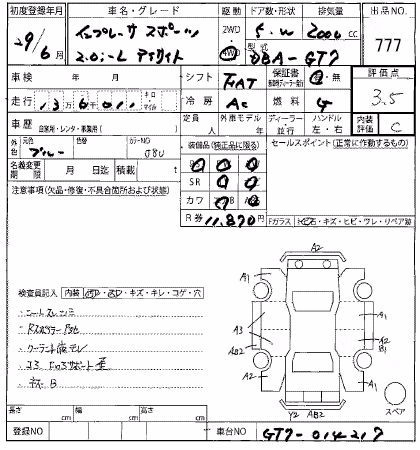 初度登録年月 車名・グレード 駆動 ドア数・形状 排気量 出品NO.
29/6月 インプレッサ スポーツ 2WD 5・W 2000cc 777
2.0i-L アイサイト 4WD 型式 DBA-GT7
車検 年 月 シフト FAT 保証書 有・無 評価点
走行 13万6011 キロ マイル 冷房 AC 燃料 3.5
車歴 自家用・レンタ・事業用( ) 定員 人 外車モデル 年 ディーラー・並行 ハンドル 左・右 内装評価 C
外色 元色 ブルー 色替 カラーNO 装備品(純正品に限る) セールスポイント(正常に作動するもの)
名義変更期限 月 日迄 積載 t SR
注意事項(欠品・修復・不具合箇所および状態) カワ
R券 11,870円 Fガラス キズ・ヒビ・ワレ・リペア跡
A2
検査員記入 内装 キズ・キレ・コゲ・穴 A1 A2
A3 A1
AB2 A2
B1
A2 A1
キズB
Y2 AB2 スペア
長さ cm 幅 cm 高さ cm
登録NO 車台NO GT7-014217